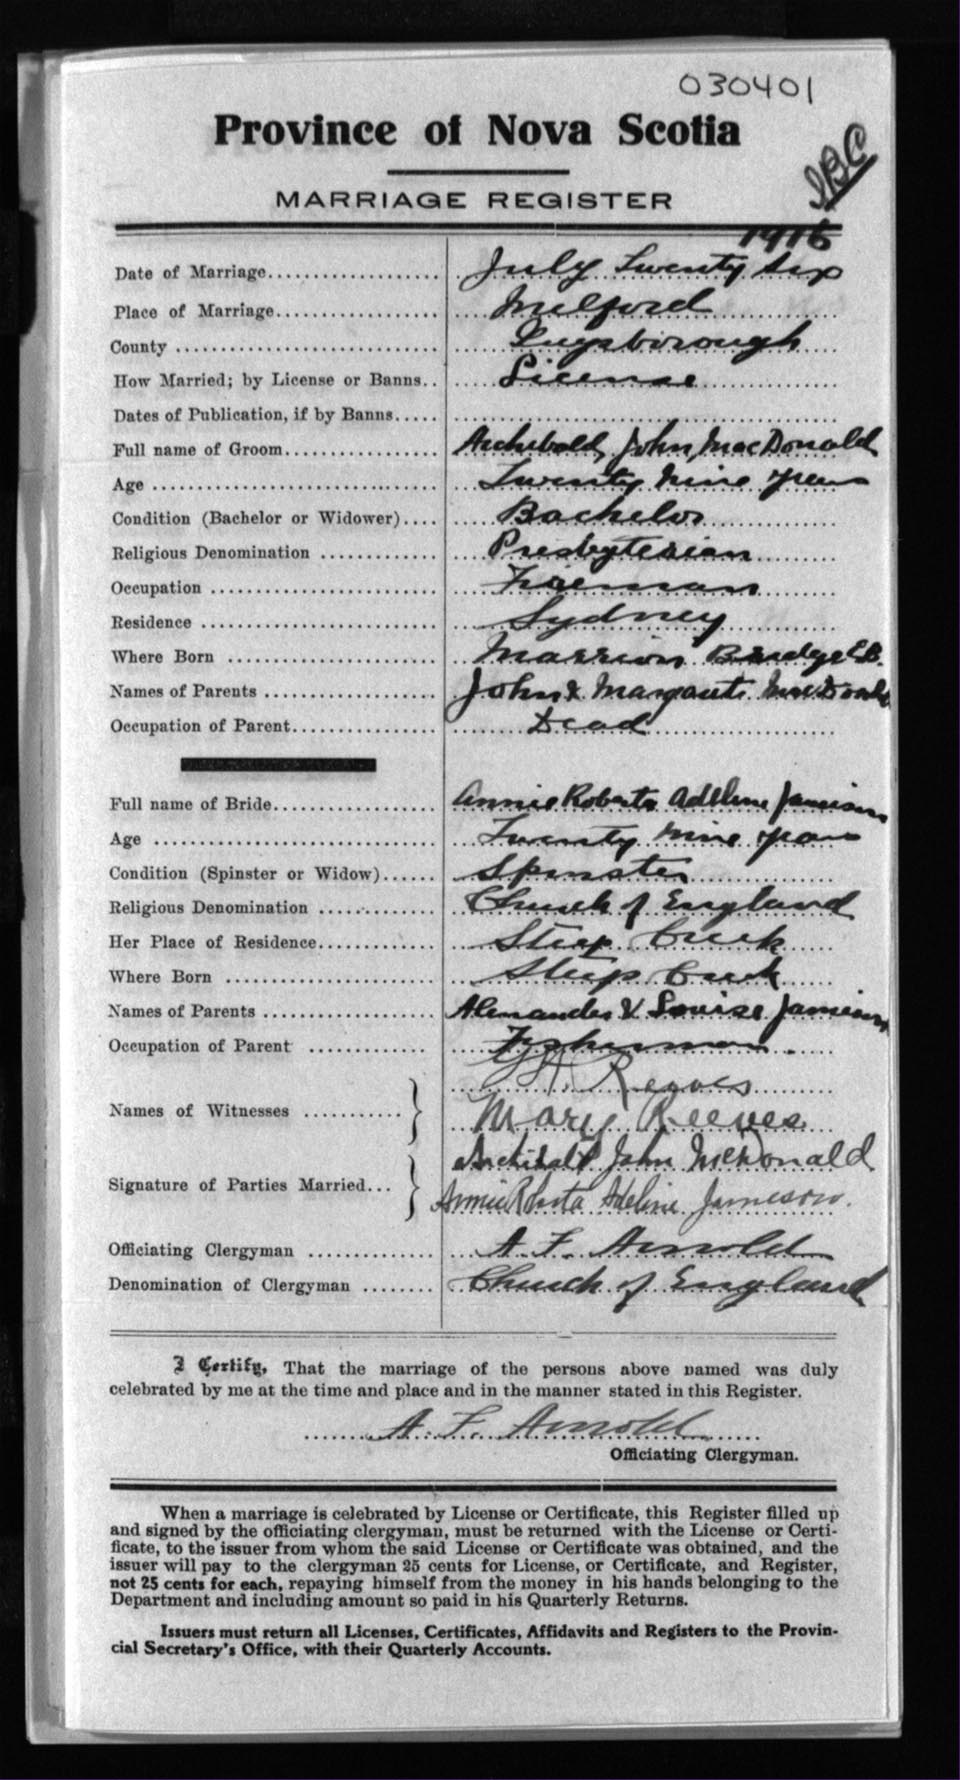 030401
Province of Nova Scotia
MARRIAGE REGISTER
1916
Date of Marriage.................. July Twenty Six
Place of Marriage................. Milford
County ........................... Guysborough
How Married; by License or Banns.. License
Dates of Publication, if by Banns.....
Full name of Groom................ Archibald John MacDonald
Age .............................. Twenty Nine years
Condition (Bachelor or Widower).... Bachelor
Religious Denomination ............ Presbyterian
Occupation ....................... Fireman
Residence ........................ Sydney
Where Born ...................... Marrion Bridge C.B.
Names of Parents ................. John & Margaret MacDonald
Occupation of Parent............... Dead
Full name of Bride................. Annie Roberta Adeline Jamieson
Age .............................. Twenty Nine years
Condition (Spinster or Widow)...... Spinster
Religious Denomination ............ Church of England
Her Place of Residence............. Steep Creek
Where Born ...................... Steep Creek
Names of Parents ................. Alexander & Louise Jamieson
Occupation of Parent ............. Fisherman
Names of Witnesses ........... Reeves
Mary Reeves
Signature of Parties Married... Archibald John McDonald
Annie Robta Adeline Jamieson.
Officiating Clergyman ............. A. F. Arnold
Denomination of Clergyman ........ Church of England
I Certify, That the marriage of the persons above named was duly
celebrated by me at the time and place and in the manner stated in this Register.
A. F. Arnold
Officiating Clergyman.
When a marriage is celebrated by License or Certificate, this Register filled up
and signed by the officiating clergyman, must be returned with the License or Certi-
ficate, to the issuer from whom the said License or Certificate was obtained, and the
issuer will pay to the clergyman 25 cents for License, or Certificate, and Register,
not 25 cents for each, repaying himself from the money in his hands belonging to the
Department and including amount so paid in his Quarterly Returns.
Issuers must return all Licenses, Certificates, Affidavits and Registers to the Provin-
cial Secretary's Office, with their Quarterly Accounts.